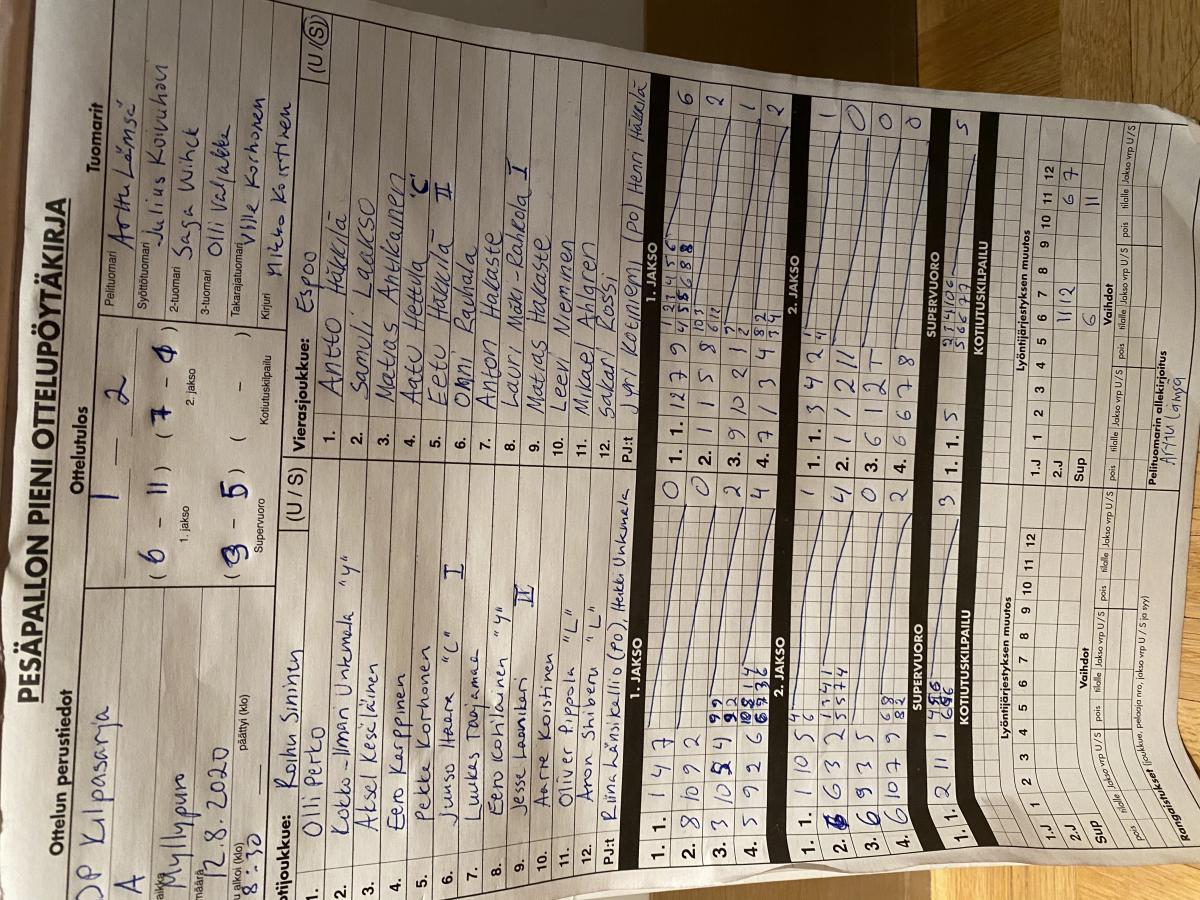 PESÄPALLON PIENI OTTELUPÖYTÄKIRJA
Ottelun perustiedot
DP Kilpasarja
A
aikka
Myllypuro
määrä
12.8.2020
u alkoi (klo)
8:30
päättyi (klo)
Ottelutulos
1 — 2
( 6 - 11 ) ( 7 - 0 )
1. jakso 2. jakso
( 3 - 5 ) ( - )
Supervuoro Kotiutuskilpailu
Tuomarit
Pelituomari Arttu Lämsä
Syöttötuomari Julius Koivuhovi
2-tuomari Saga Wihek
3-tuomari Olli Valjakka
Takarajatuomari Ville Korhonen
Kirjuri Mikko Koistinen
otijoukkue: Roihu Sininen (U / S)
1. Olli Perko
2. Kokko-Ilmari Unkemata "Y"
3. Aksel Keseläinen
4. Eero Karppinen
5. Pekka Korhonen
6. Juuso Haara "C" I
7. Luukas Torjamaa
8. Eero Kohlainen "Y"
9. Jesse Laonikari II
10. Aarre Koistinen
11. Oliver Pippola "L"
12. Amon Shiberu "L"
PJ:t Riina Länsikallio (PO), Heikki Unkemala
Vierasjoukkue: Espoo (U / S)
1. Antto Häkkilä
2. Samuli Laakso
3. Matias Antikainen
4. Aatu Hettula "C"
5. Eetu Häkkilä II
6. Onni Rauhala
7. Anton Hakaste
8. Lauri Mäki-Rahkola I
9. Matias Hakaste
10. Leevi Nieminen
11. Mikael Ahlgren
12. Sakari Rossi
PJ:t Jyri Kotiniemi (PO) Henri Häkkilä
1. JAKSO
1. 1. 1 4 7 0
2. 8 10 9 2 0
3. 3 10 5 4 9 9 2
4. 5 9 2 6 4
2. JAKSO
1. 1. 1 10 5 4 6 1
2. 6 3 2 1 3 4 1 5 5 7 4 4
3. 6 9 3 5 0
4. 6 10 7 9 6 8 8 2 2
SUPERVUORO
1. 1. 2 11 1 3
KOTIUTUSKILPAILU
1. JAKSO
1. 1. 12 7 9 1 2 3 4 5 6 6
2. 1 1 5 8 10 3 6 12 2
3. 9 10 2 1 1
4. 7 1 3 4 8 2 3 4 2
2. JAKSO
1. 1. 3 4 2 1
2. 1 1 2 11 0
3. 6 1 2 T 0
4. 6 6 7 8 0
SUPERVUORO
1. 1. 5 2 3 4 10 6 5 6 6 7 7 5
KOTIUTUSKILPAILU
Lyöntijärjestyksen muutos
1 2 3 4 5 6 7 8 9 10 11 12
1.J
2.J
Sup
Vaihdot
pois tilalle Jakso vrp U / S pois tilalle Jakso vrp U / S pois tilalle Jakso vrp U / S
Lyöntijärjestyksen muutos
1 2 3 4 5 6 7 8 9 10 11 12
1.J 11 12 6 7
2.J 6 11
Sup
Vaihdot
pois tilalle Jakso vrp U / S pois tilalle Jakso vrp U / S pois tilalle Jakso vrp U / S
Rangaistukset (joukkue, pelaaja nro, jakso vrp U / S ja syy)
Pelituomarin allekirjoitus
Arttu Lämsä